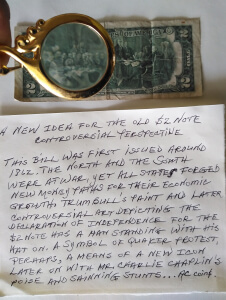 2
A NEW IDEA FOR THE OLD $2 NOTE
CONTROVERSIAL PERSPECTIVE
THIS BILL WAS FIRST ISSUED AROUND
1862. THE NORTH AND THE SOUTH
WERE AT WAR, YET ALL STATES FORGED
NEW MONEY PATHS FOR THEIR ECONOMIC
GROWTH, TRUMBULL'S PAINT AND LATER
CONTROVERSIAL ART DEPICTING THE
DECLARATION OF INDEPENDENCE FOR THE
$2 NOTE HAS A MAN STANDING WITH HIS
HAT ON. A SYMBOL OF QUAKER PROTEST,
PERHAPS, A MEANS OF A NEW ICON
LATER ON WITH MR. CHARLIE CHAPLIN'S
POISE AND STUNTS...